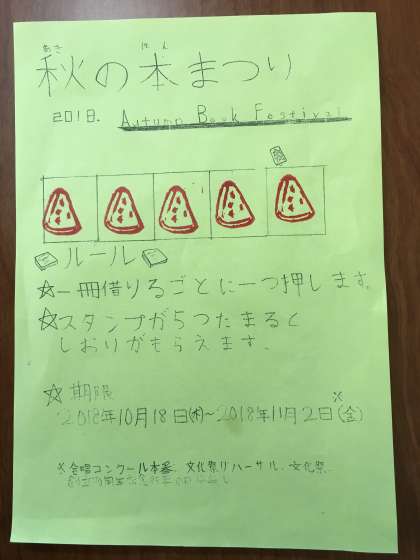 秋の本まつり
あき ほん
2018. Autumn Book Festival
ルール
☆一冊借りるごとに一つ押します。
☆スタンプが5つたまると
しおりがもらえます。
☆期限
2018年10月18日(木)~2018年11月2日(金)※
※合唱コンクール本番、文化祭リハーサル、文化祭、